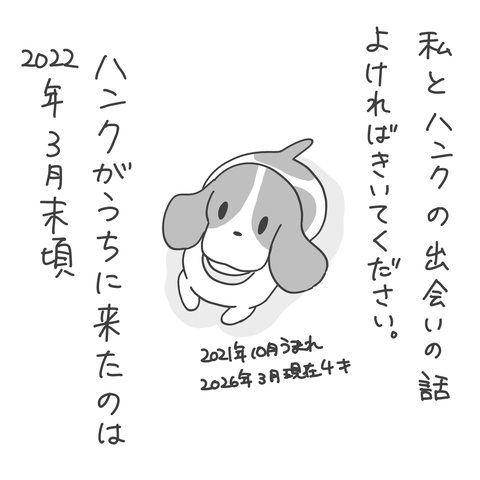 私とハンクの出会いの話
よければきいてください。
2021年10月うまれ
2026年3月現在4才
ハンクがうちに来たのは
2022年3月末頃